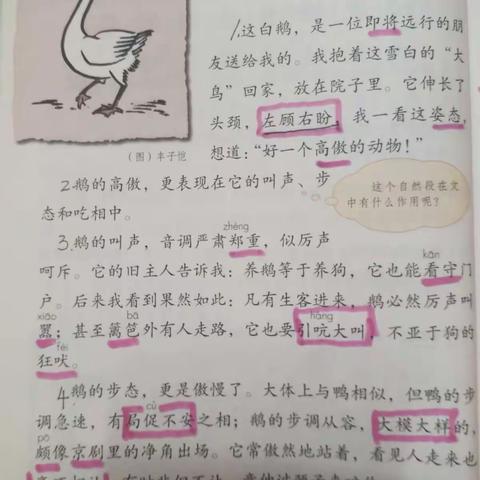 1.这白鹅，是一位即将远行的朋
友送给我的。我抱着这雪白的“大
鸟”回家，放在院子里。它伸长了
头颈，左顾右盼，我一看这姿态，
想道：“好一个高傲的动物！”
（图）丰子恺
2.鹅的高傲，更表现在它的叫声、步
态和吃相中。
这个自然段在文
中有什么作用呢？
zhèng
3.鹅的叫声，音调严肃郑重，似厉声
kān
呵斥。它的旧主人告诉我：养鹅等于养狗，它也能看守门
户。后来我看到果然如此：凡有生客进来，鹅必然厉声叫
xiāo bā háng
嚣；甚至篱笆外有人走路，它也要引吭大叫，不亚于狗的
fèi
狂吠。
4.鹅的步态，更是傲慢了。大体上与鸭相似，但鸭的步
cù
调急速，有局促不安之相；鹅的步调从容，大模大样的，
pō
颇像京剧里的净角出场。它常傲然地站着，看见人走来也